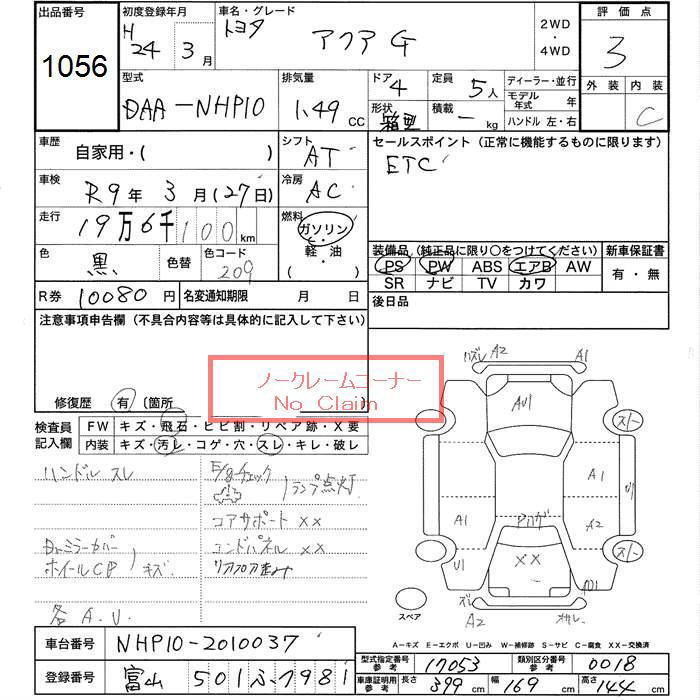 出品番号 初度登録年月 車名・グレード 2WD ・ 4WD 評価点
1056 H 24 3月 トヨタ アクア G 3
型式 排気量 ドア 定員 ディーラー・並行 外装 内装
DAA-NHP10 1.49 CC 4 5人 モデル年式 年 C
形状 箱型 積載 - kg ハンドル 左・右
車歴 自家用・( ) シフト AT セールスポイント (正常に機能するものに限ります)
車検 R9年 3月(27日) 冷房 AC ETC
走行 19万6千100km 燃料 ガソリン 軽・油 ( )
色 黒 色替 色コード 209
装備品 (純正品に限り○をつけてください) 新車保証書
PS PW ABS エアB AW 有・無
SR ナビ TV カワ
R券 10080円 名変通知期限 月 日 後日品
注意事項申告欄 (不具合内容等は具体的に記入して下さい)
ノークレームコーナー
No Claim
修復歴 有 〔箇所
検査員記入欄 FW キズ・飛石・ヒビ割・リペア跡・X要
内装 キズ・汚レ・コゲ・穴・スレ・キレ・破レ
ハンドル スレ
E/gチェック ランプ点灯
コアサポート ××
Drミラーカバー エンドパネル ××
ホイールCP キズ リアフロア歪み
各 A.U.
ハズレ A2 A1
AU1
A1
A1 A2
U1
××
ズレ A2
スペア
A-キズ E-エクボ U-凹み W-補修跡 S-サビ C-腐食 XX-交換済
車台番号 NHP10-2010037
登録番号 富山 501 ふ 7981
型式指定番号 参考 17053 類別区分番号 参考 0018
車庫証明用 参考 長さ 399cm 幅 169cm 高さ 144cm